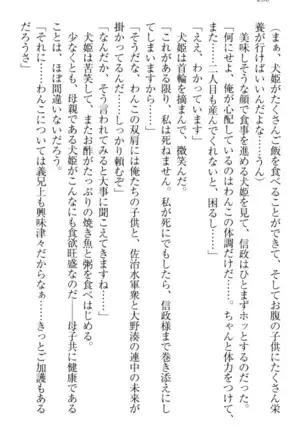 (まぁ、犬姫がたくさんご飯を食べることができて、そしてお腹の子供にたくさん栄
養が行けばいいんだよな……うん)
美味しそうな顔で食事を進める犬姫を見て、信政はひとまずホッとするのだった。
「何にせよ、俺が心配しているのはわんこの体調だけだ……。ちゃんと体力をつけて
もらって……二人目も産んでくれないと、困るし……」
「ええ、わかっています」
犬姫は首輪を摘まんで、微笑んだ。
「これがある限り、私は死ねません。私が死にでもしたら、信政様まで巻き添えにし
てしまいますから……」
「そうだな、わんこの双肩には俺たちの子供と、佐治水軍衆と大野湊の連中の未来が
掛かってるんだっ……しっかり頼むぞ」
「なんだか、そう言われてみると大事に聞こえてきますね……」
犬姫は苦笑して、またお酢がたっぷりの焼き魚と粥を食べはじめる。
少なくとも、母親である犬姫がこんなにも食欲旺盛なのだ――母子共に健康である
ことは、ほぼ間違いないだろう。
「それに……わんこについては義兄上も興味津々だからなぁ……きっとご加護もある
だろうさ」